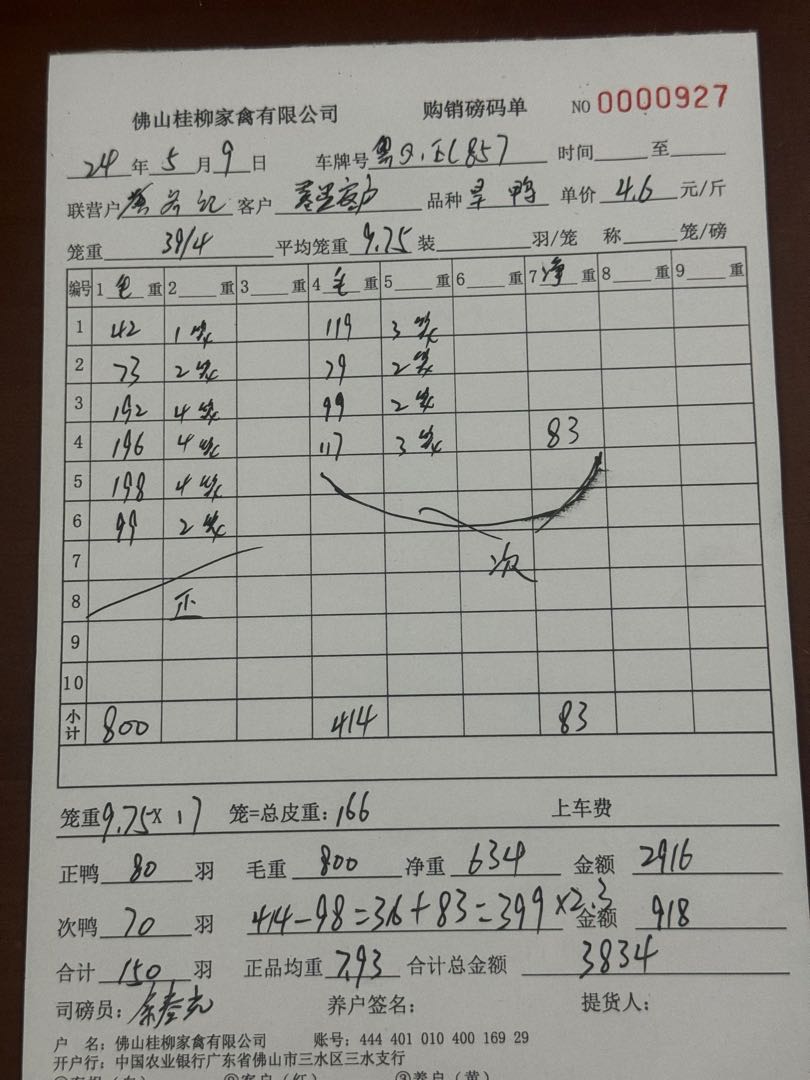 佛山桂柳家禽有限公司 购销磅码单 NO 0000927
24 年 5 月 9 日 车牌号 857 时间 至
联营户 客户 品种 旱鸭 单价 4.6 元/斤
笼重 39/4 平均笼重 9.75 装 羽/笼 称 笼/磅
编号 1 毛 重 2 重 3 重 4 毛 重 5 重 6 重 7 净 重 8 重 9 重
1 42 1笼 119 3笼
2 73 2笼 79 2笼
3 192 4笼 99 2笼
4 196 4笼 117 3笼 83
5 198 4笼
6 99 2笼
7 次
8 正
9
10
小计 800 414 83
笼重 9.75 × 17 笼=总皮重: 166 上车费
正鸭 80 羽 毛重 800 净重 634 金额 2916
次鸭 70 羽 414-98=316+83=399×2.3 金额 918
合计 150 羽 正品均重 7.93 合计总金额 3834
司磅员: 养户签名: 提货人:
户 名: 佛山桂柳家禽有限公司 账号: 444 401 010 400 169 29
开户行: 中国农业银行广东省佛山市三水区三水支行